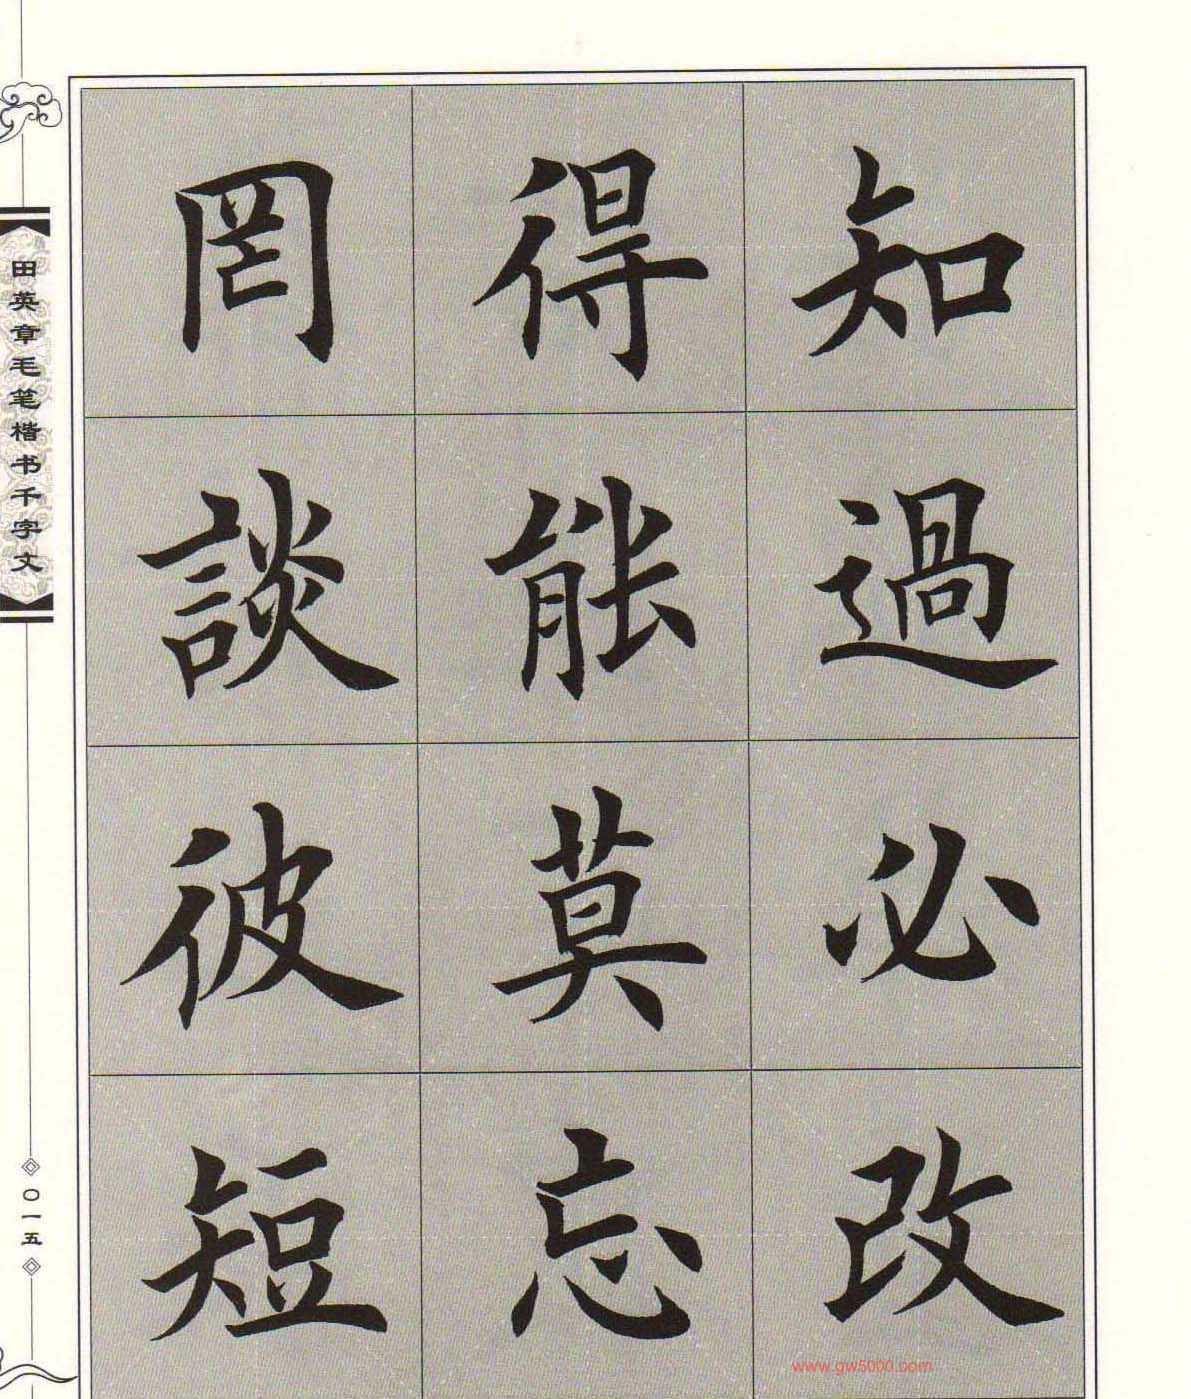 知過必改
得能莫忘
罔談彼短
田英章毛笔楷书千字文
〇一五
www.gw5000.com